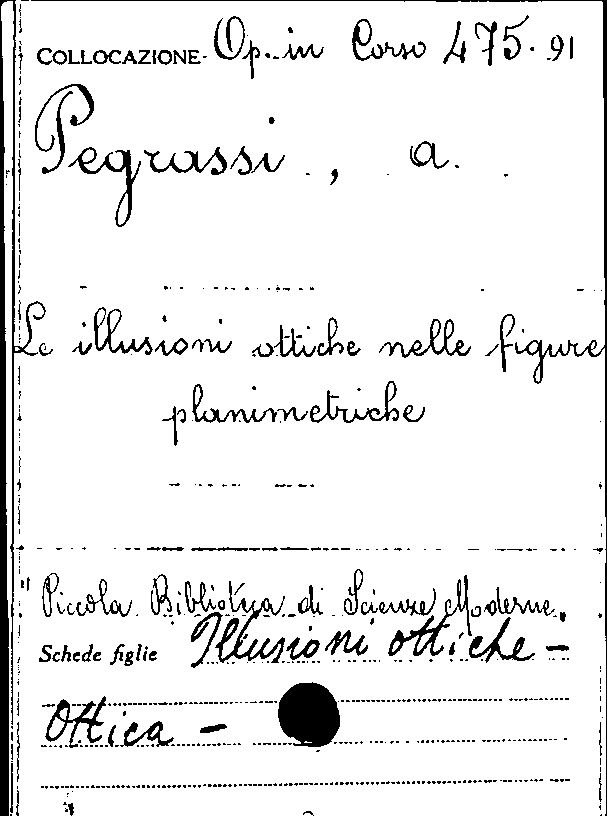 COLLOCAZIONE Op. in Corso 475.91
Pegrassi, a.
Le illusioni ottiche nelle figure
planimetriche
"Piccola Biblioteca di Scienze Moderne"
Schede figlie Illusioni ottiche -
Ottica -